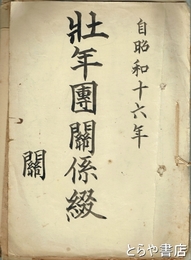 自昭和十六年
壯年團關係綴
關
とらや書店